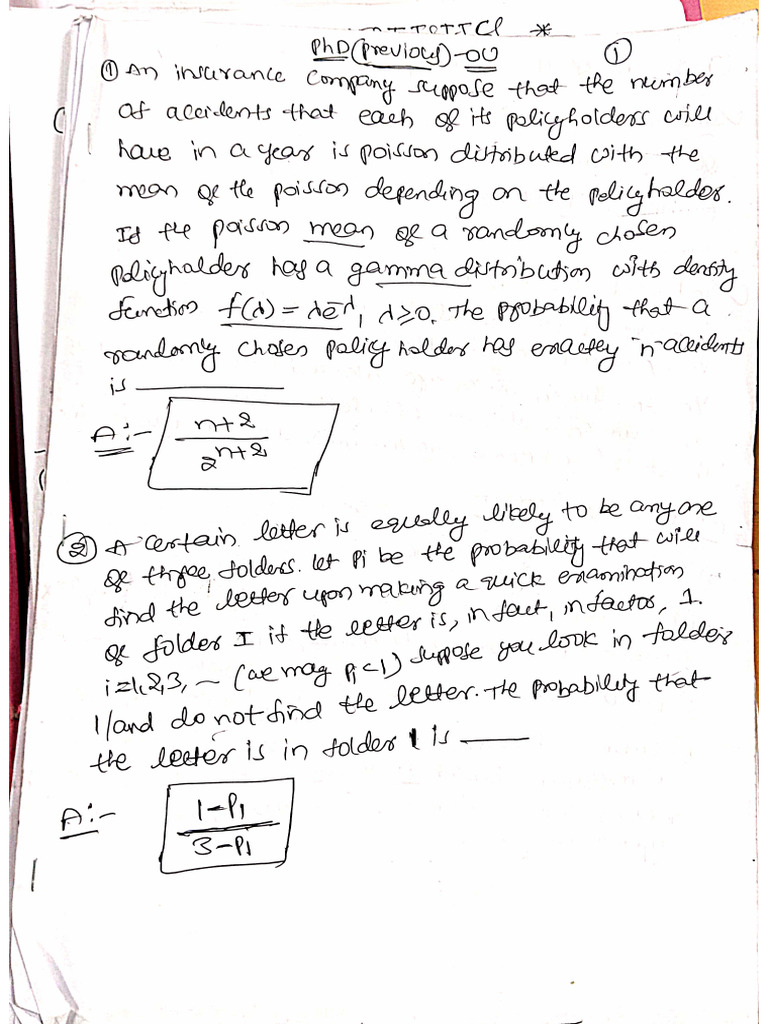 PhD (previous) - OU ①
① An insurance company suppose that the number
of accidents that each of its policyholders will
have in a year is poisson distributed with the
mean of the poisson depending on the policyholder.
If the poisson mean of a randomly chosen
policyholder has a gamma distribution with density
function f(λ) = λe^-λ, λ≥0. The probability that a
randomly chosen policy holder has exactly "n" accidents
is ________
A:- n+2 / 2^n+2
② A certain letter is equally likely to be any one
of three folders. let Pi be the probability that will
find the letter upon making a quick examination
of folder I if the letter is, in fact, in factor, 1.
i=1,2,3, ~ (we may Pi<1) suppose you look in folder
1/and do not find the letter. The probability that
the letter is in folder 1 is ____
A:- 1-P1 / 3-P1